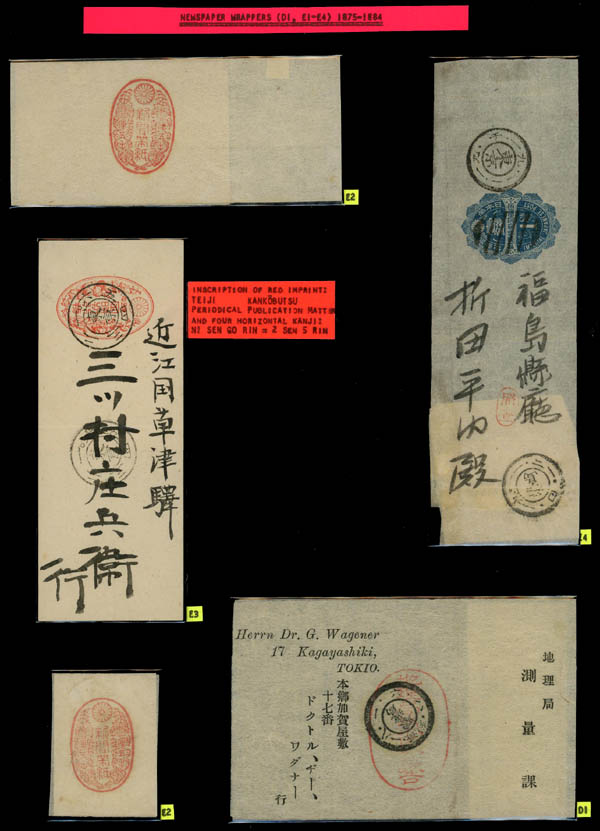 NEWSPAPER WRAPPERS (D1, E1-E4) 1875-1884
新聞紙
E2
福島縣廳
折田平内殿
E4
近江国草津驛
三ツ村庄兵衛
行
E3
INSCRIPTION OF RED IMPRINT:
TEIJI KANKŌBUTSU
PERIODICAL PUBLICATION MATTER
AND FOUR HORIZONTAL KANJI:
NI SEN GO RIN = 2 SEN 5 RIN
E2
Herrn Dr. G. Wagener
17 Kagayashiki,
TOKIO.
本鄕加賀屋敷
十七番
ドクトル、ヂー、
ワグナー 行
地理局
測量課
D1